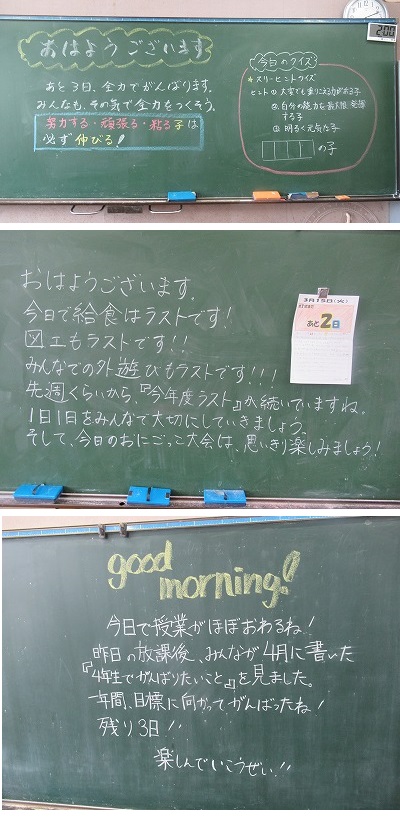 おはようございます
あと3日、全力でがんばります。
みんなも、その気で全力をつくそう。
努力する・頑張る・粘る子は
必ず伸びる!
今日のクイズ
*スリーヒントクイズ
ヒント① 大変でも乗りこえる力がある子
②自分の能力を最大限発揮
する子
③明るく元気な子
の子
200
おはようございます。
今日で給食はラストです!
図工もラストです!!
みんなでの外遊びもラストです!!!
先週くらいから、『今年度ラスト』が続いていますね。
1日1日をみんなで大切にしていきましょう。
そして、今日のおにごっこ大会は、思いきり楽しみましょう!
3月15日(火)
あと2日
good
morning!
今日で授業がほぼおわるね!
昨日の放課後、みんなが4月に書いた
『4年生でがんばりたいこと』を見ました。
一年間、目標に向かってがんばったね!
残り3日!!
楽しんでいこうぜい!!